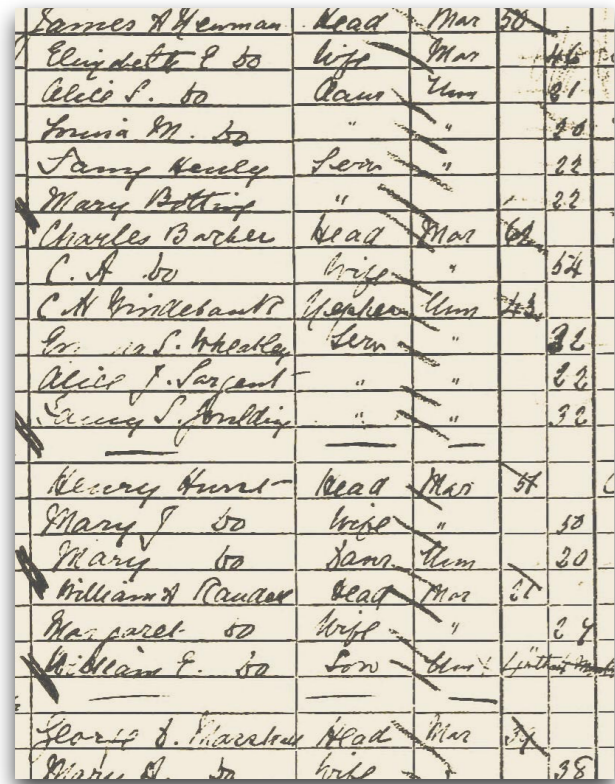 James A Newman Head Mar 50
Elizabeth E do Wife Mar 46
Alice S. do Daur Unm 21
Louisa M. do " " 20
Fanny Henly Serv " 22
Mary Botting " " 22
Charles Barker Head Mar
C. A do Wife " 54
C H Windebank Nephew Unm 43
S. Wheatley Serv " 32
Alice J. Sargent " " 22
Fanny S. Goulding " " 32
Henry Hunt Head Mar 51
Mary J do Wife " 50
Mary do Daur Unm 20
William A Randell Head Mar
Margaret do Wife "
William E. do Son Unm
George D. Marshall Head Mar
Mary A. do Wife 38